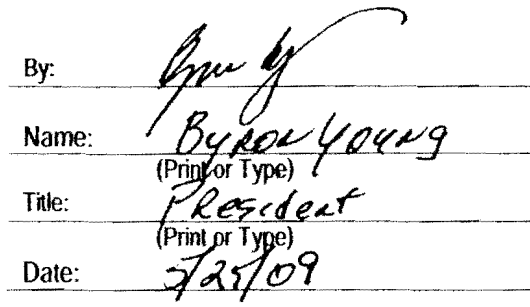 By:
Name: Byron Young
(Print or Type)
Title: President
(Print or Type)
Date: 2/25/09